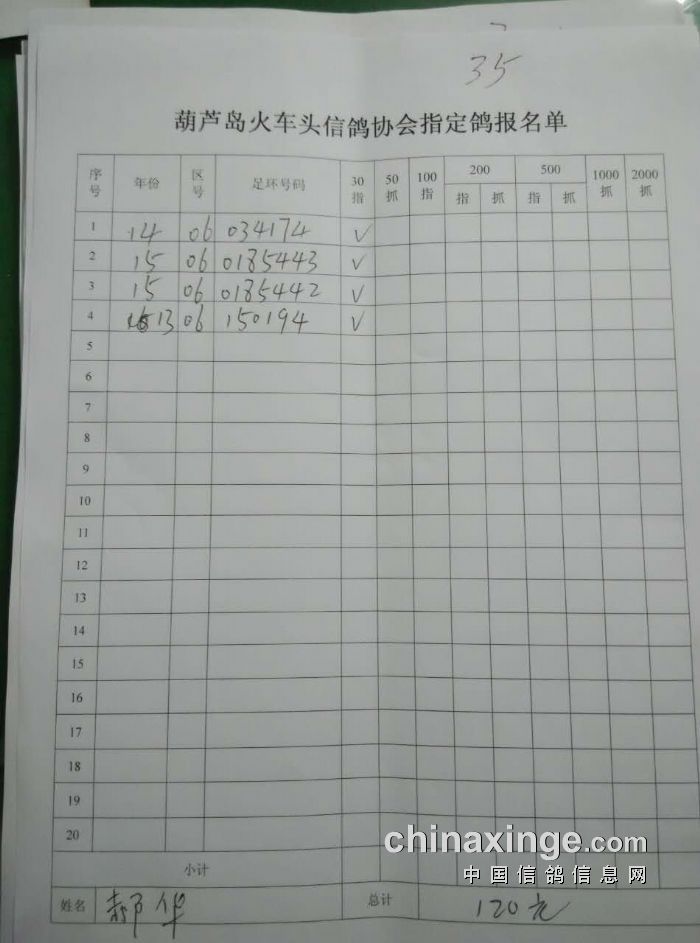 35
葫芦岛火车头信鸽协会指定鸽报名单
序号 年份 区号 足环号码 30指 50抓 100指 200 500 1000抓 2000抓
指 抓 指 抓
1 14 06 034174 √
2 15 06 0185443 √
3 15 06 0185442 √
4 13 06 150194 √
5
6
7
8
9
10
11
12
13
14
15
16
17
18
19
20
小计
姓名 郝华 总计 120元
chinaxinge.com
中国信鸽信息网